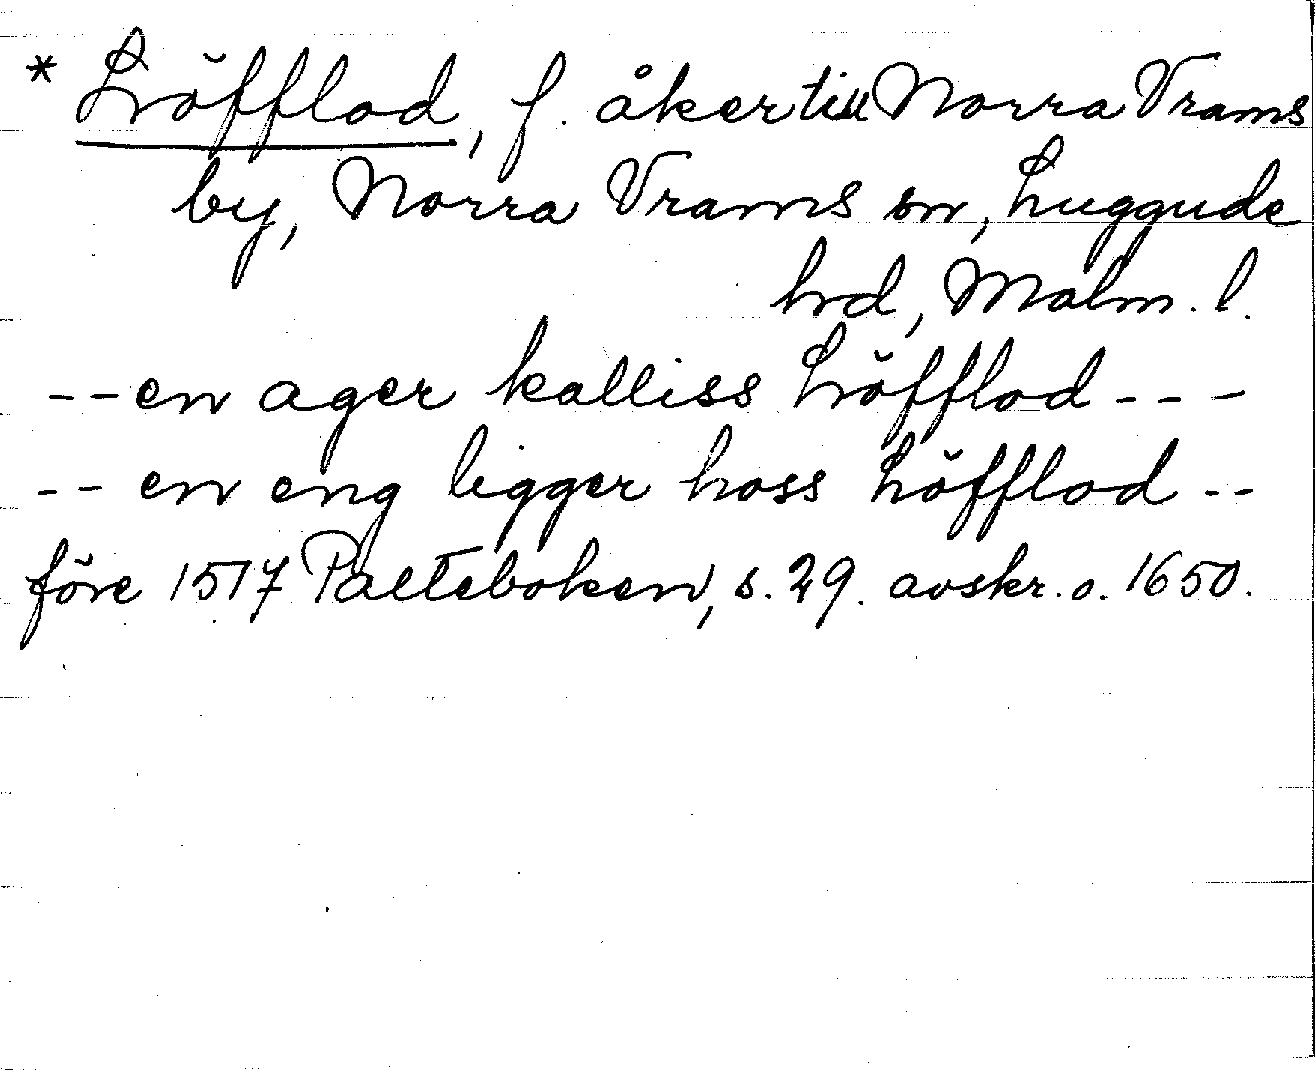 * Löfflod, f. åker till Norra Vrams
by, Norra Vrams sn, Luggude
hrd, Malm. l.
-- en ager kalliss Löfflod ---
-- en eng ligger hoss Löfflod --
före 1517 Palteboken, s. 29. avskr. o. 1650.